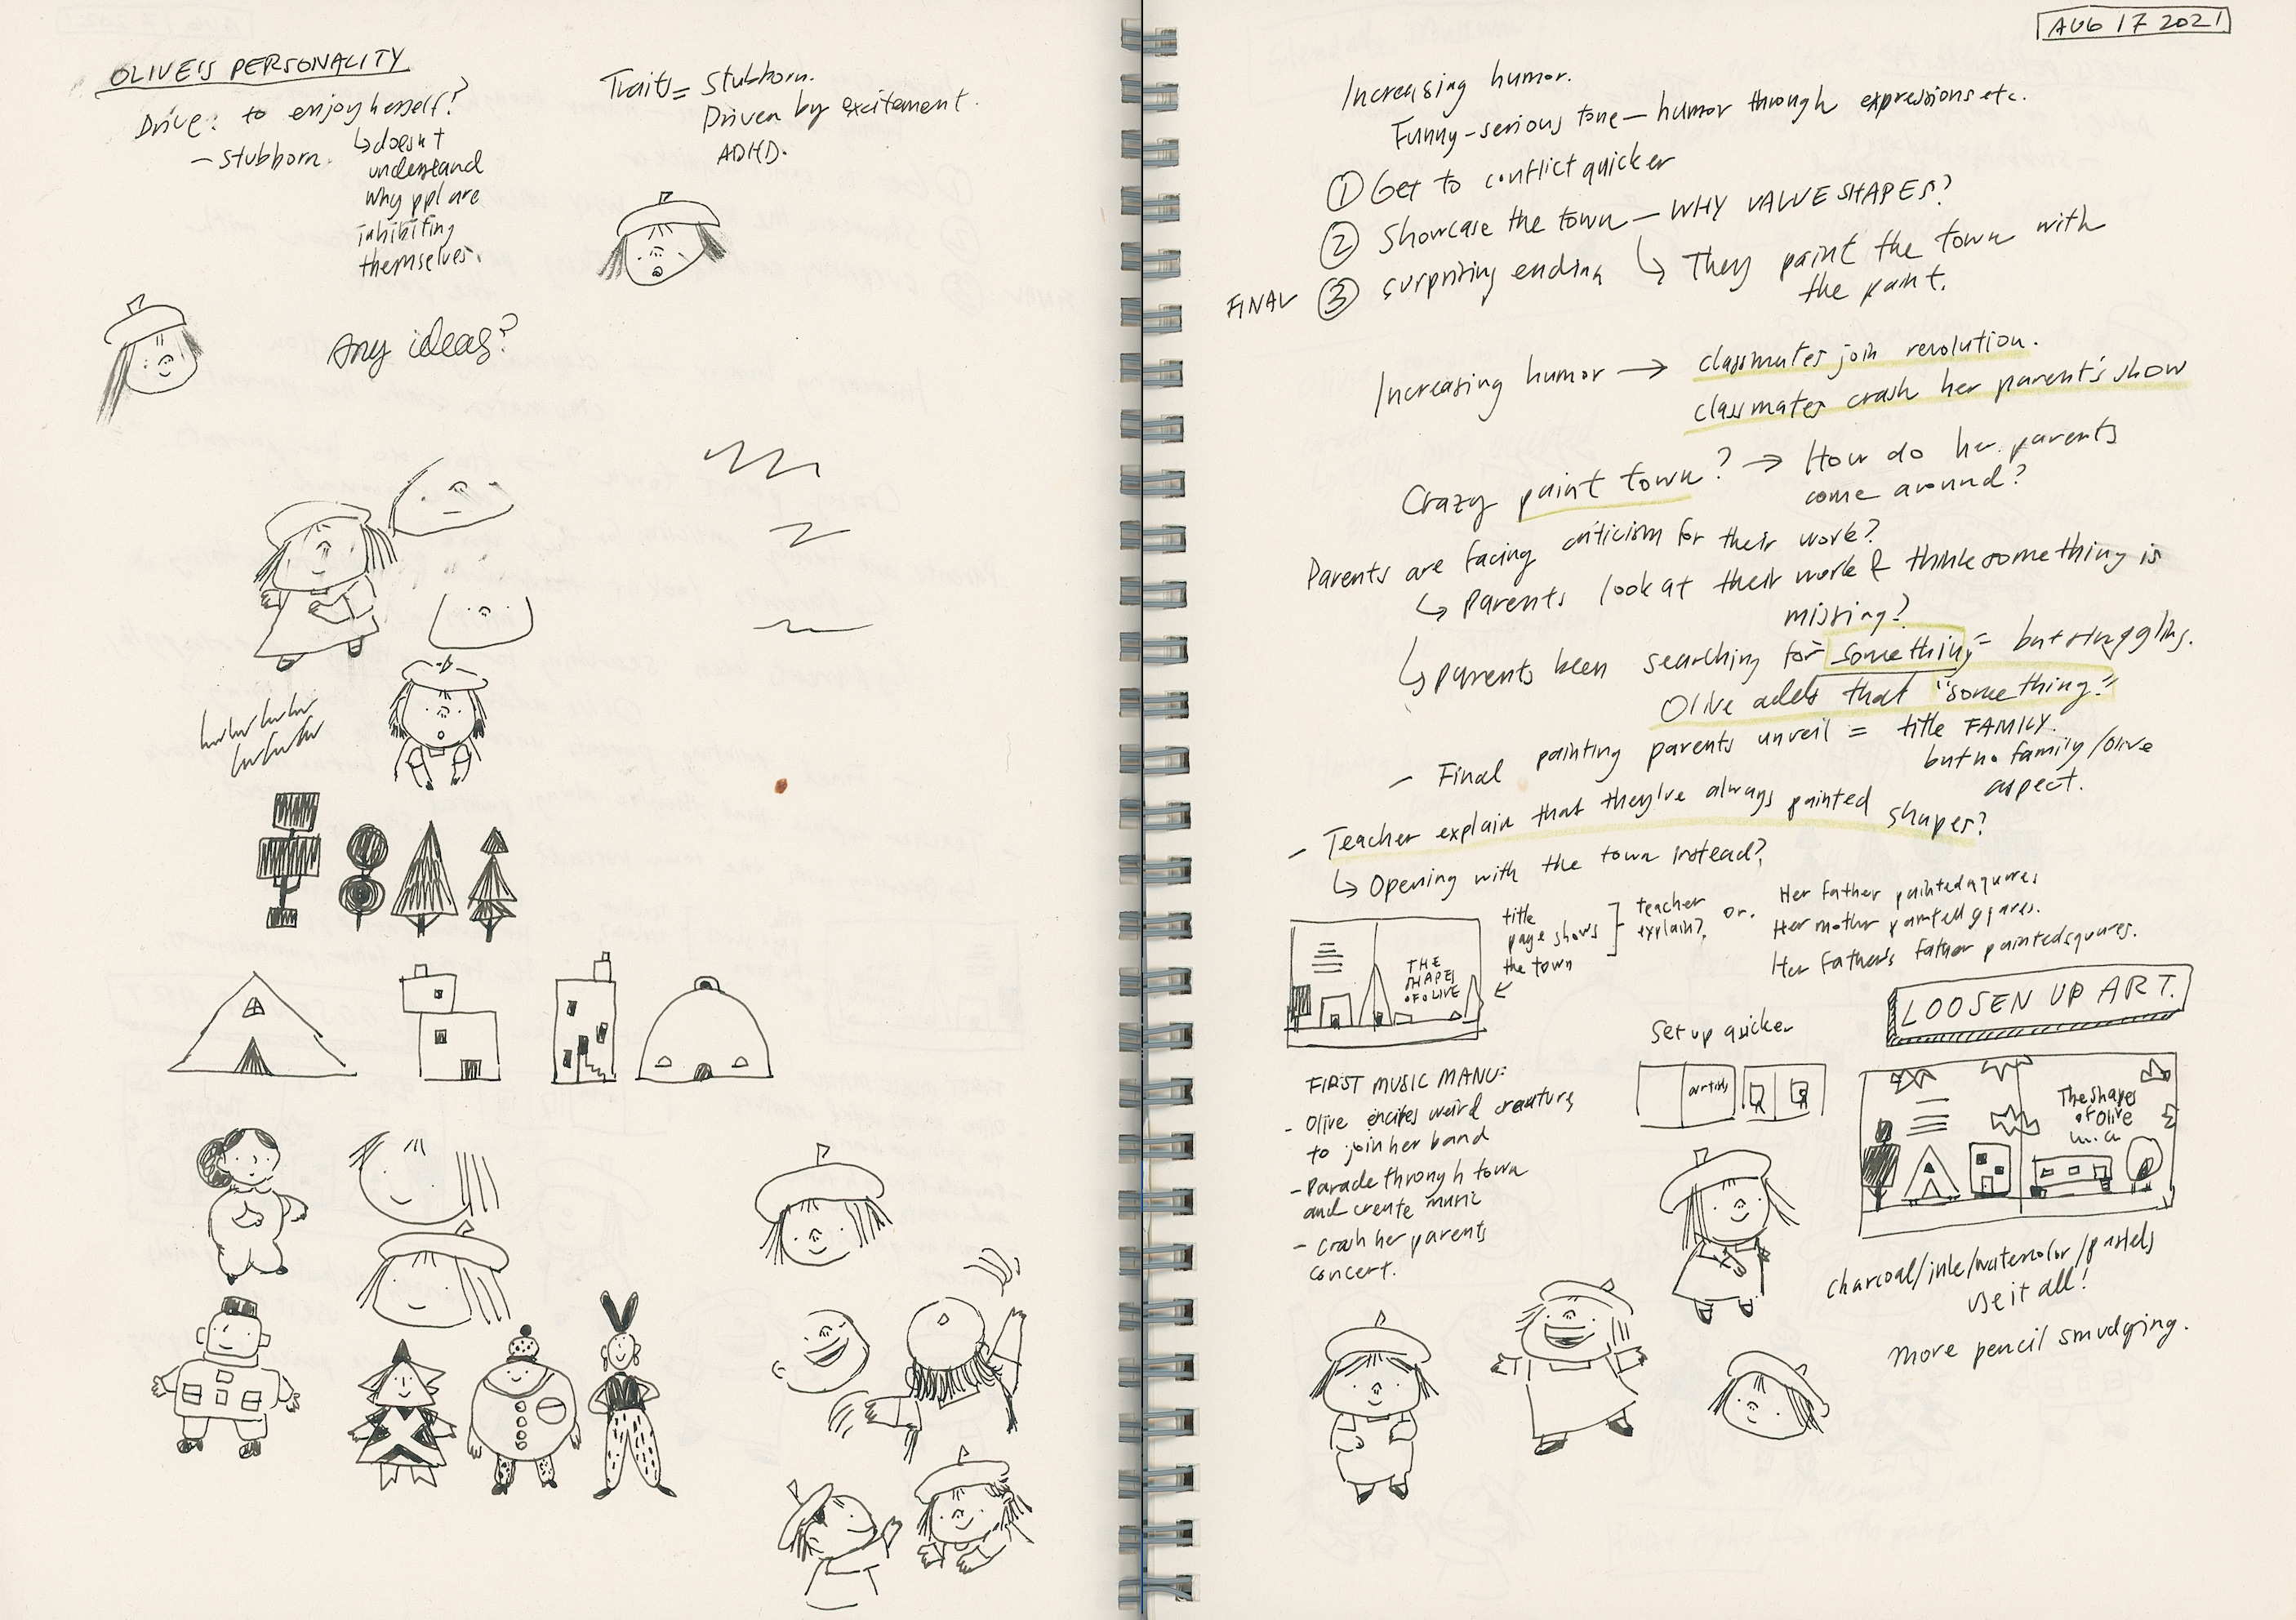 OLIVE'S PERSONALITY
Drive: to enjoy herself?
- stubborn.
↳ doesn't
understand
why ppl are
inhibiting
themselves.
Traits = Stubborn.
Driven by excitement.
ADHD.
Any ideas?
AUG 17 2021
Increasing humor.
Funny-serious tone — humor through expressions etc.
① Get to conflict quicker
② Showcase the town — WHY VALUE SHAPES?
↳ They paint the town with
the paint.
FINAL ③ surprising ending
Increasing humor → classmates join revolution.
classmates crash her parent's show
Crazy paint town? → How do her parents
come around?
Parents are facing criticism for their work?
↳ Parents look at their work & think something is
missing?
↳ parents been searching for "something" but struggling.
Olive adds that "something"
- Final painting parents unveil = title FAMILY.
but no family/Olive
aspect.
- Teacher explain that they've always painted shapes?
↳ Opening with the town instead?
title
page shows
the town
teacher
explain?
or.
Her father painted squares
Her mother painted squares.
Her father's father painted squares.
THE
SHAPES
OF OLIVE
LOOSEN UP ART.
Set up quicker
FIRST MUSIC MANU:
- Olive weird creatures
to join her band
- Parade through town
and create music
- crash her parents
concert.
The shapes
of Olive
charcoal/ink/watercolor/pastels
use it all!
more pencil smudging.